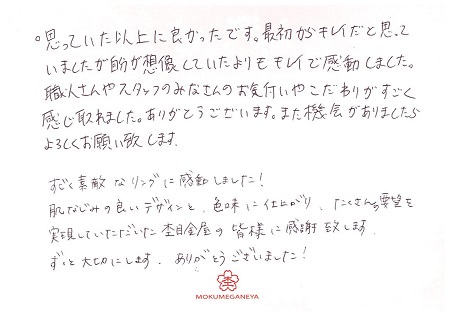 。思っていた以上に良かったです。最初からキレイだと思って
いましたが自分が想像していたよりもキレイで感動しました。
職人さんやスタッフのみなさんのお気付いやこだわりがすごく
感じ取れました。ありがとうございます。また機会がありましたら
よろしくお願い致します。
すごく素敵なリングに感動しました！
肌なじみの良いデザインと、色味に仕上がり、たくさんの要望を
実現していただいた杢目金屋の皆様に感謝致します。
ずっと大切にします。ありがとうございました！
MOKUMEGANEYA